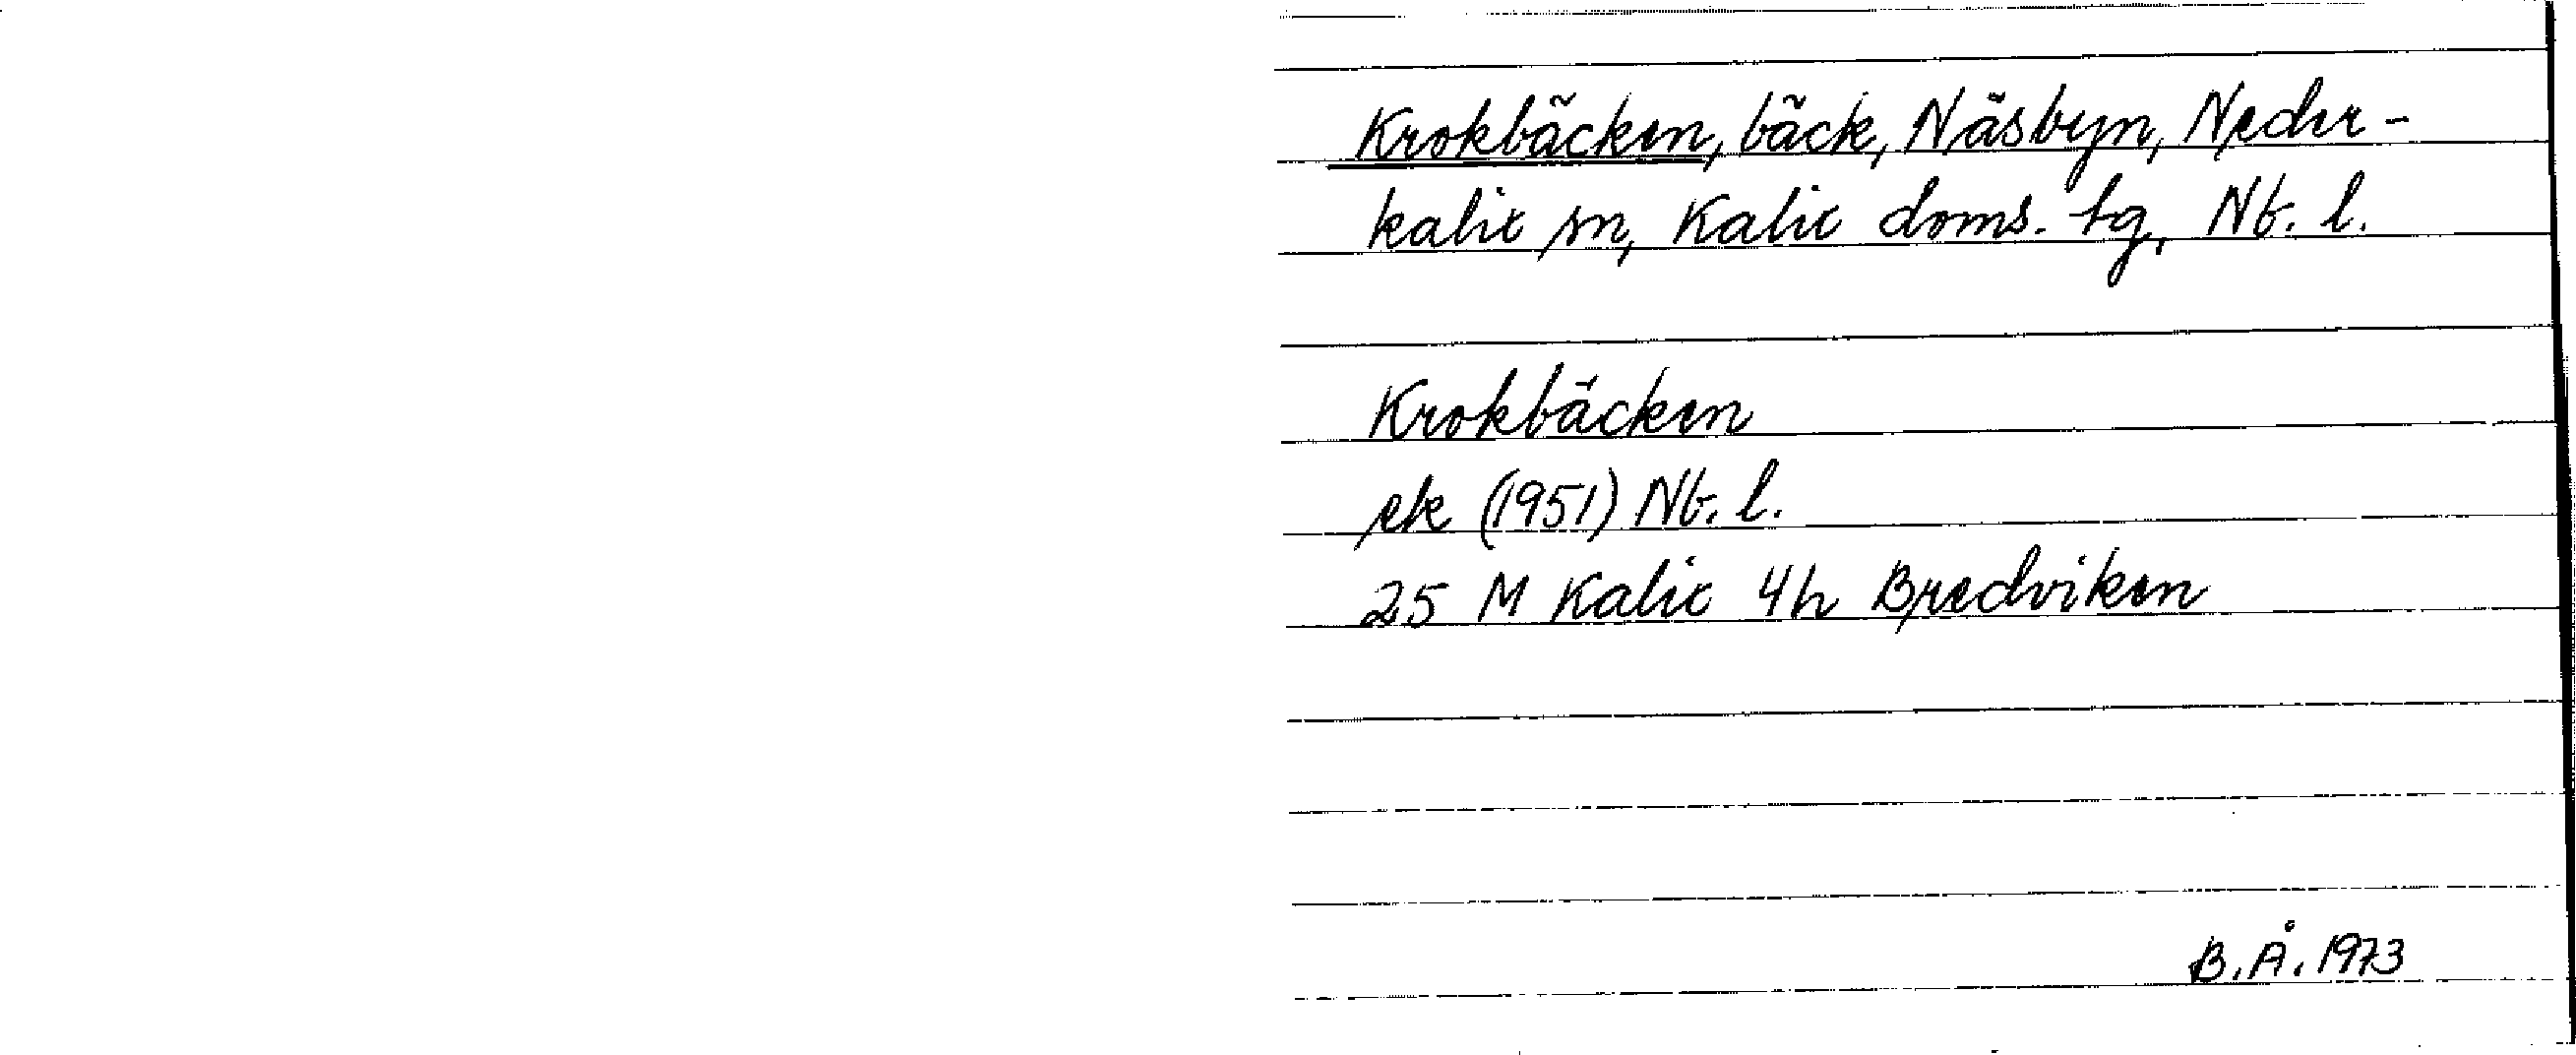 Krokbäcken, bäck, Näsbyn, Neder-
kalix sn, Kalix doms. tg, Nb. l.
Krokbäcken
ek (1951) Nb. l.
25 M Kalix 4h Bredviken
B.Å. 1973